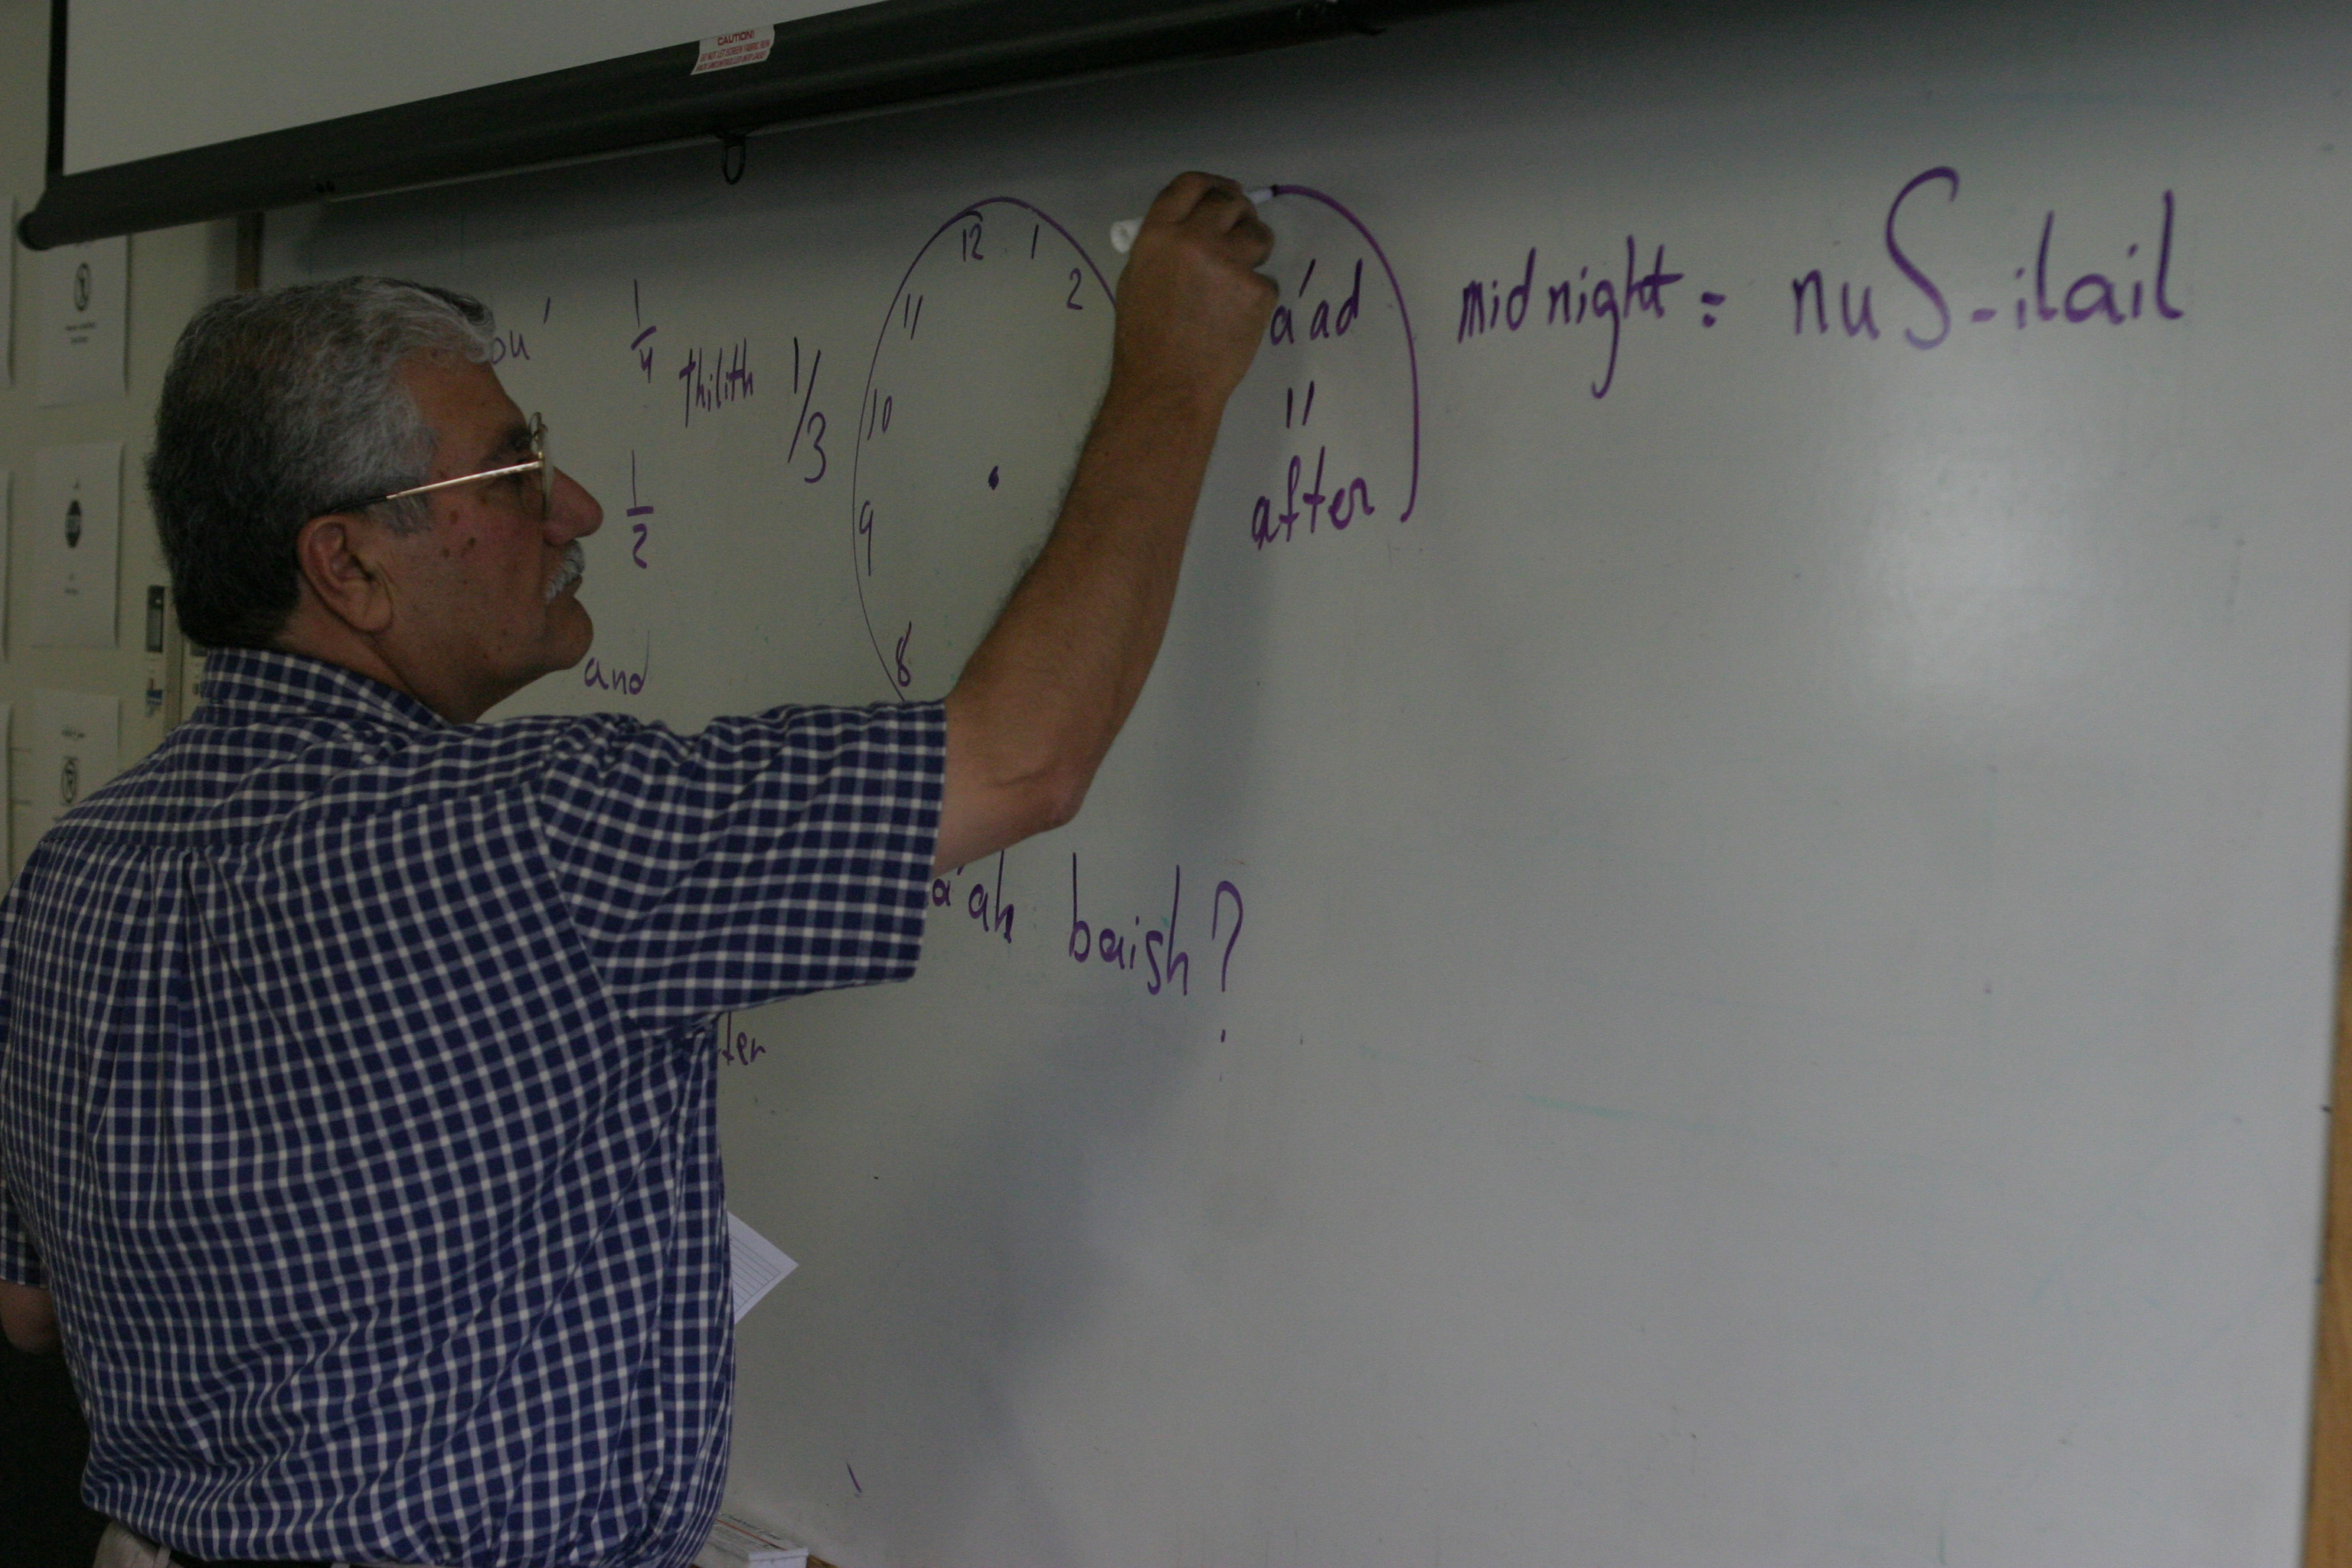 CAUTION!
ou' 1/4 thilith 1/3
1/2
and
12 1 2
11
10
9
8
a'ad
"
after
midnight = nuS-ilail
a'ah baish?
ter